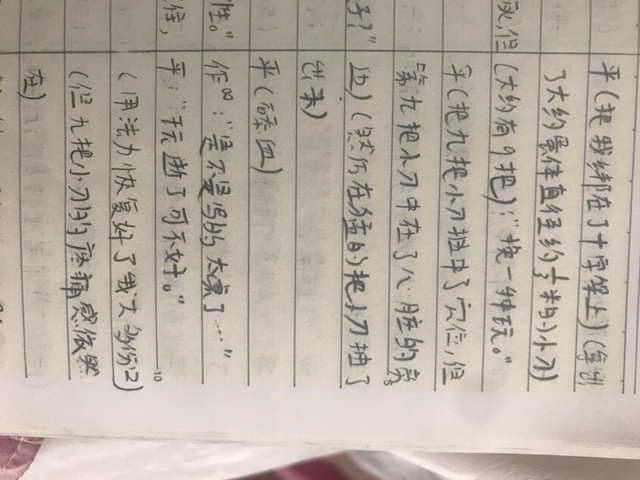 平(把我绑在了十字架上)(拿出
了大约晶体直径约⅓米的小刀)
成,但
(大约有9把):"换一种玩。"
平(把九把小刀扭中了穴位,但
第九把小刀中在了心脏的旁
子?"
边)(然后在猛的把小刀抽了
出来)
平(舔血)
性。"
作∞:"是不是写的太累了...."
住,
平:"玩断了可不好。"
10
(用法力恢复好了我大多伤口)
(但九把小刀的疼痛感依然
在)